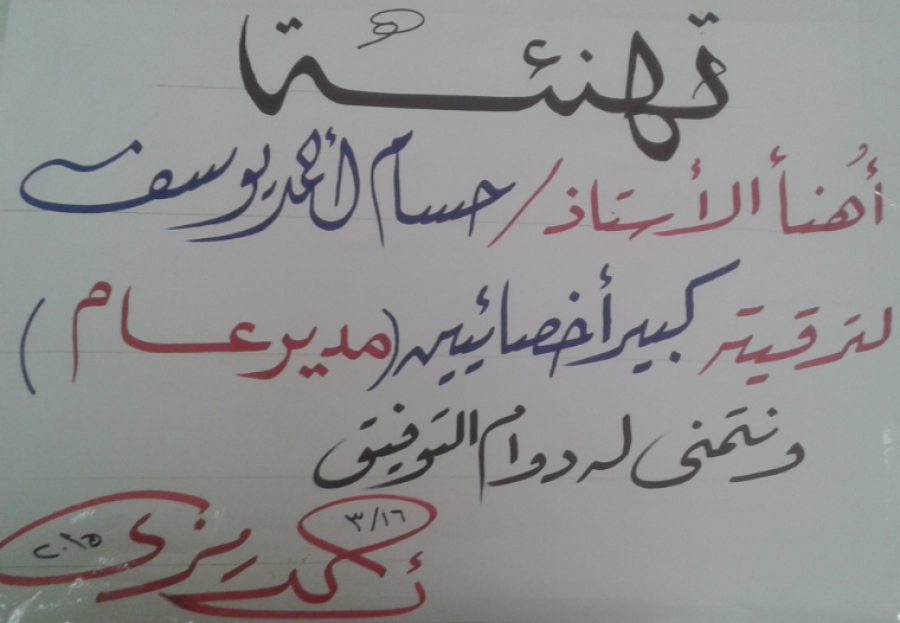 تهنئة
أُهنأ الأستاذ / حسام أحمد يوسف
لترقيته كبير أخصائيين (مدير عام)
ونتمنى له دوام التوفيق
٣/١٦
أحمد رمزى
٢٠١٥